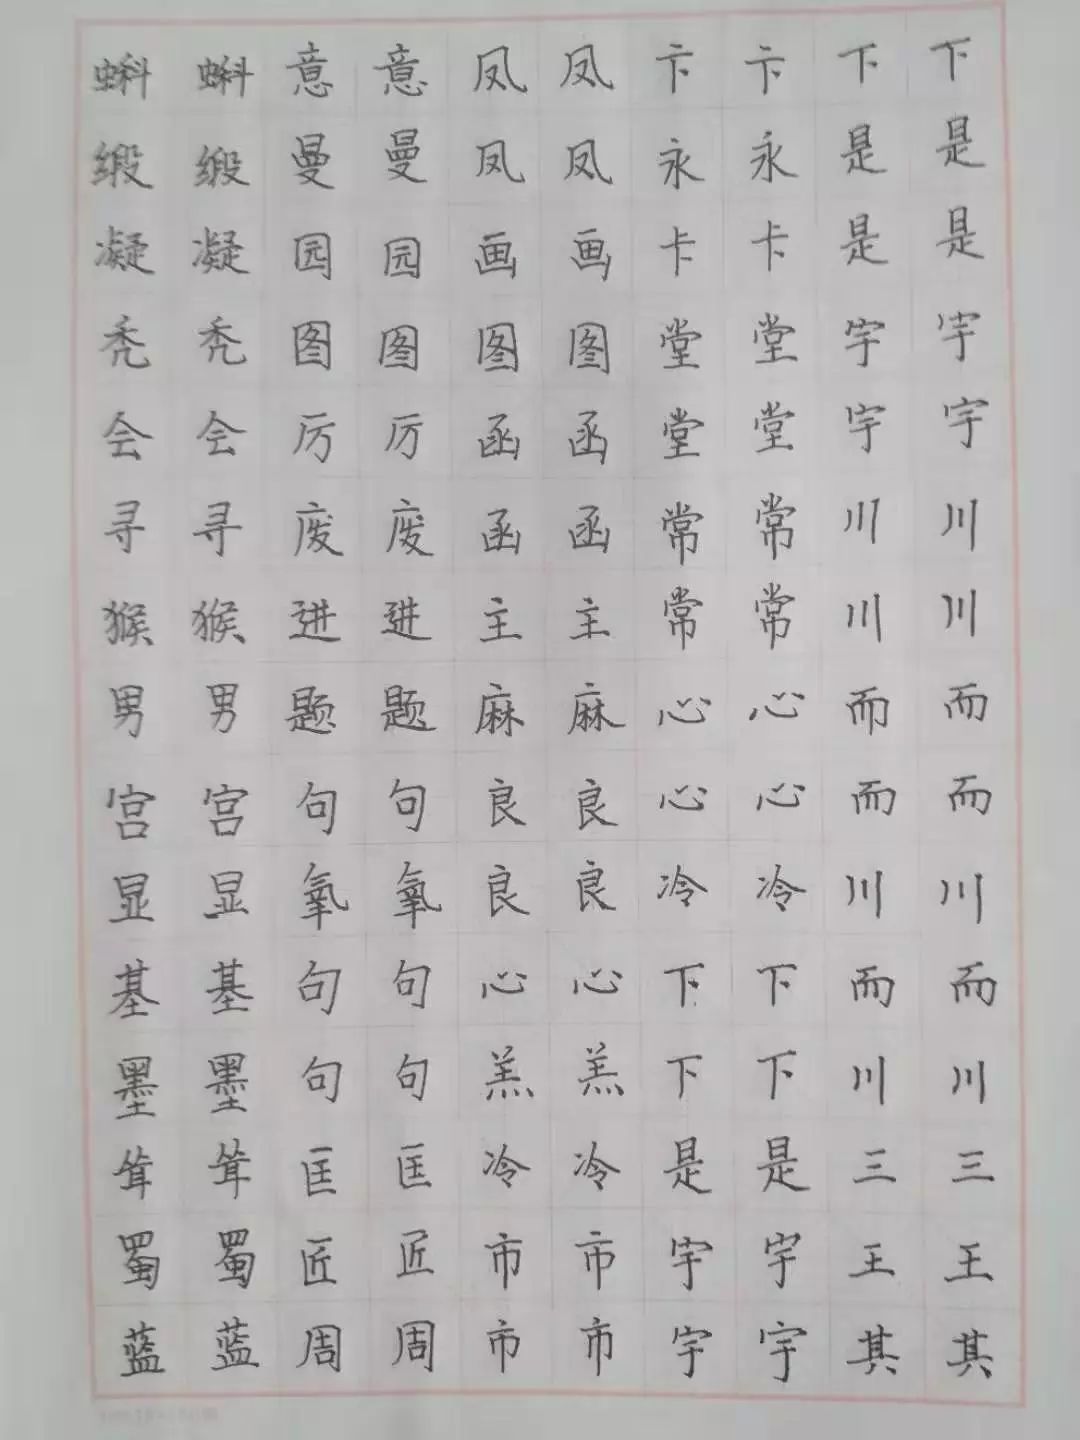 蝌 蝌 意 意 凤 凤 卞 卞 下 下
缎 缎 曼 曼 凤 凤 永 永 是 是
凝 凝 园 园 画 画 卡 卡 是 是
秃 秃 图 图 图 图 堂 堂 宇 宇
会 会 厉 厉 函 函 堂 堂 宇 宇
寻 寻 废 废 函 函 常 常 川 川
猴 猴 进 进 主 主 常 常 川 川
男 男 题 题 麻 麻 心 心 而 而
宫 宫 句 句 良 良 心 心 而 而
显 显 氧 氧 良 良 冷 冷 川 川
基 基 句 句 心 心 下 下 而 而
墨 墨 句 句 羔 羔 下 下 川 川
耸 耸 匡 匡 冷 冷 是 是 三 三
蜀 蜀 匠 匠 市 市 宇 宇 王 王
蓝 蓝 周 周 市 市 宇 宇 其 其